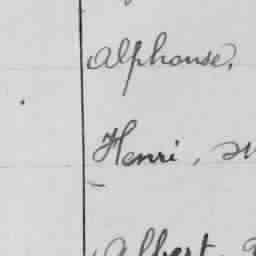 Alphonse,
Henri,
Albert